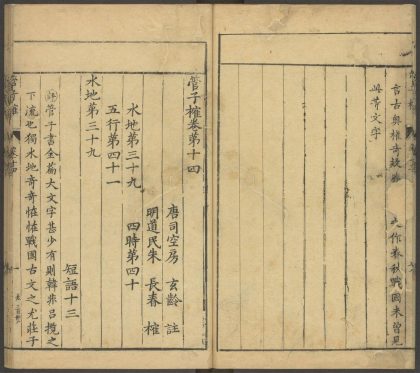 言古奧惟奇故
夫作春秋戰國未曾見
此等文字
管子榷卷第十四
唐司空房 玄齡 註
明道民朱 長春 榷
水地第三十九 四時第四十
五行第四十一
水地第三十九
短語十三
評管子書全篇大文字甚少有則韓非呂攬之
下流也獨水地奇奇恠恠戰國古文之尤莊子